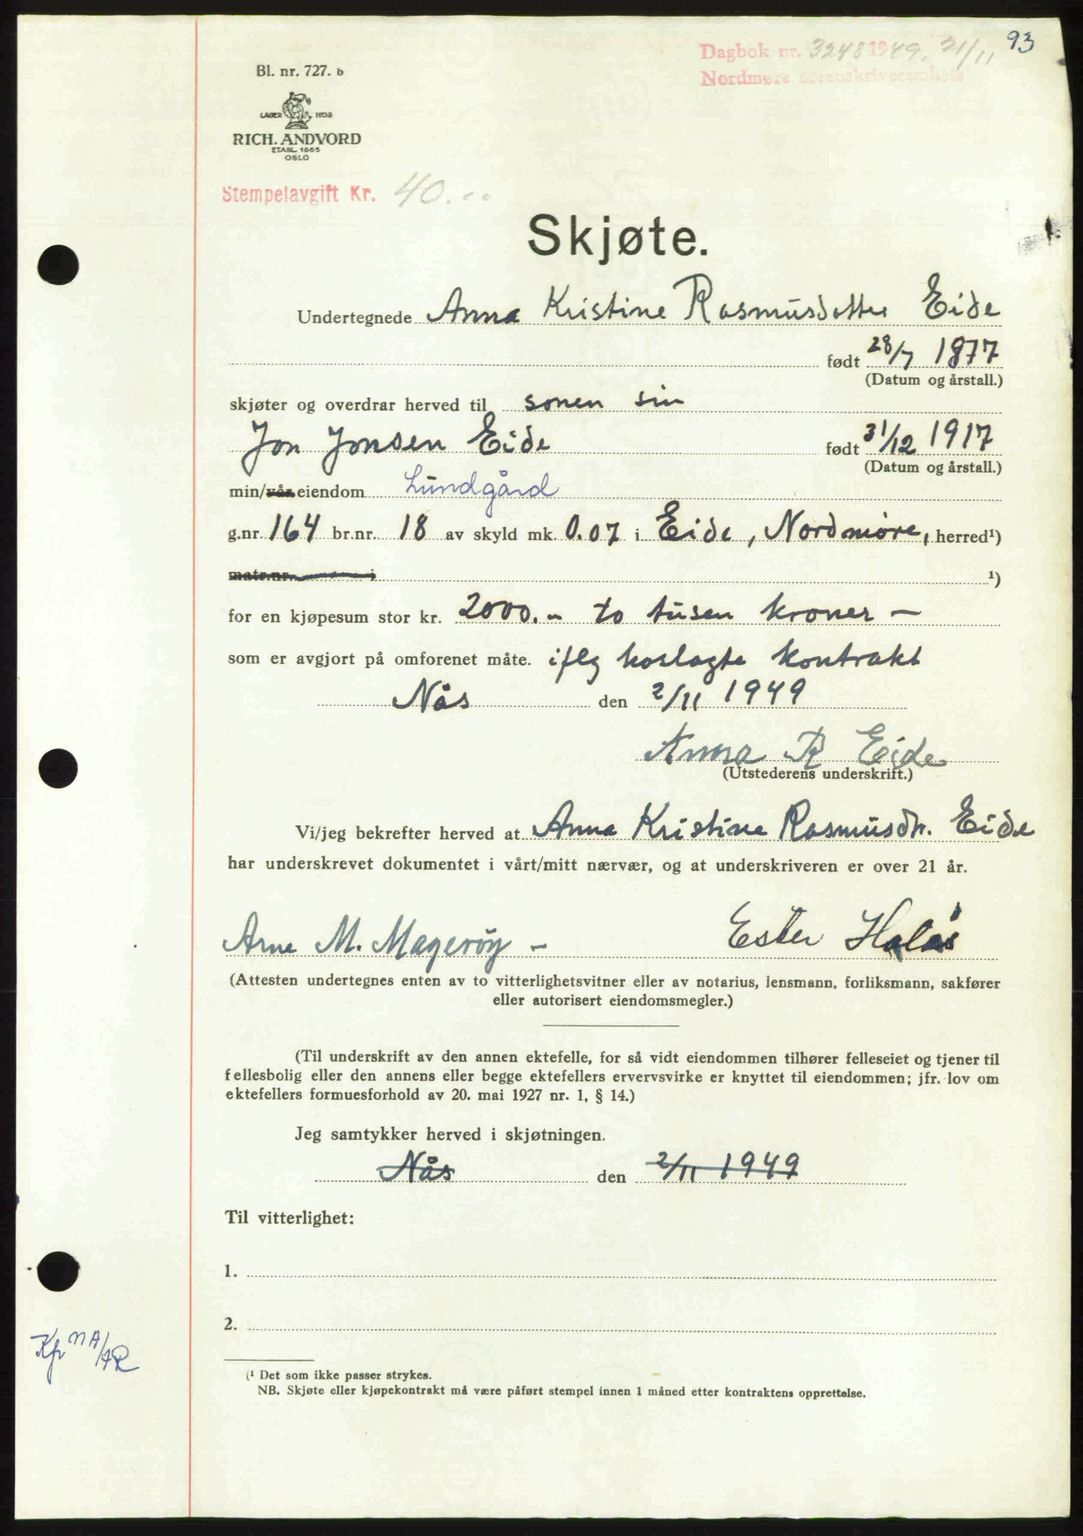 93
Dagbok nr. 3248 1949. 21/11
Nordmøre sorenskriverembete
Bl. nr. 727. b
LAGER HOS
RICH. ANDVORD
ETABL. 1865
OSLO
Stempelavgift Kr. 40.--
Skjøte.
Undertegnede Anna Kristine Rasmusdatter Eide
født 28/7 1877
(Datum og årstall.)
skjøter og overdrar herved til sonen sin
Jon Jonsen Eide født 31/12 1917
(Datum og årstall.)
min/vår eiendom Lundgård
g.nr. 164 br.nr. 18 av skyld mk. 0.07 i Eide, Nordmøre, herred¹)
matr.nr. i ¹)
for en kjøpesum stor kr. 2000.- to tusen kroner —
som er avgjort på omforenet måte. iflg hoslagte kontrakt
Nås den 2/11 1949
Anna R Eide
(Utstederens underskrift.)
Vi/jeg bekrefter herved at Anna Kristine Rasmusdtr. Eide
har underskrevet dokumentet i vårt/mitt nærvær, og at underskriveren er over 21 år.
Arne M. Magerøy – Ester Halås
(Attesten undertegnes enten av to vitterlighetsvitner eller av notarius, lensmann, forliksmann, sakfører
eller autorisert eiendomsmegler.)
(Til underskrift av den annen ektefelle, for så vidt eiendommen tilhører felleseiet og tjener til
fellesbolig eller den annens eller begge ektefellers ervervsvirke er knyttet til eiendommen; jfr. lov om
ektefellers formuesforhold av 20. mai 1927 nr. 1, § 14.)
Jeg samtykker herved i skjøtningen.
Nås den 2/11 1949
Til vitterlighet:
1.
2.
Kp
(¹ Det som ikke passer strykes.
NB. Skjøte eller kjøpekontrakt må være påført stempel innen 1 måned etter kontraktens opprettelse.